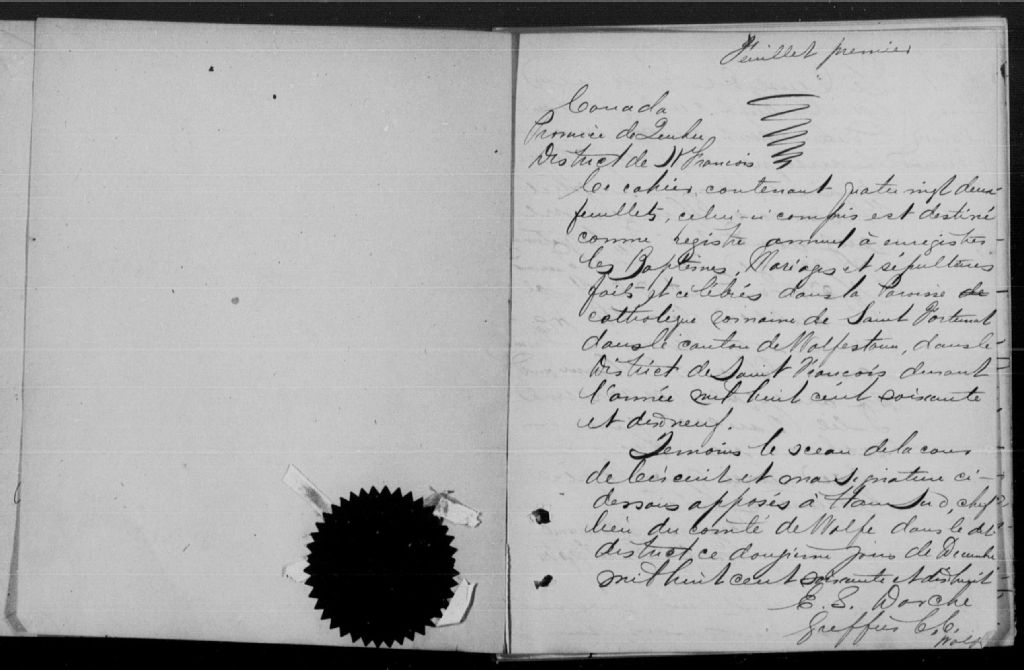 Feuillet premier
Canada
Province de Quebec
District de St Francois
Ce cahier, contenant quatre vingt deux
feuillets, celui-ci compris est destiné
comme registre annuel à enregistrer
les Baptêmes, Mariages et sépultures
faits et célébrés dans la Paroisse de
catholique romaine de Saint Fortunat
dans le canton de Wolfestown, dans le
District de Saint Francois durant
l'année mil huit cent soixante
et dix neuf.
Temoins le sceau de la cour
de Circuit et ma signature ci-
dessous apposés à Ham Sud, chef
lieu du comté de Wolfe dans le dit
district, ce douzieme jour de Decembre
mil huit cent soixante et dix huit
E. S. Darche
Greffier C. C.
Wolfe